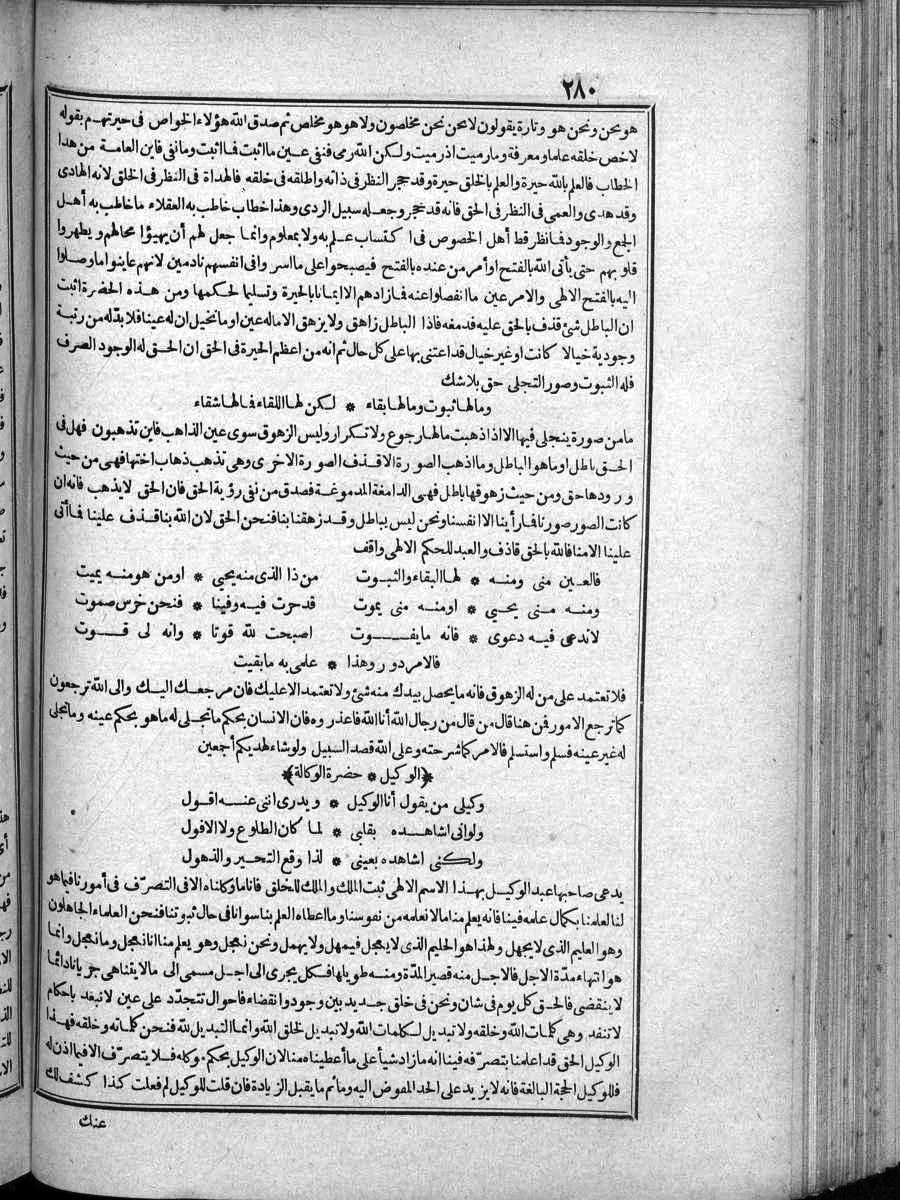 ٢٨٠
هو نحن ونحن هو وتارة يقولون لا نحن نحن مخلصون ولا هو هو مخلص ثم صدق الله هؤلاء الخواص فى حيرتهم بقوله
لاخص خلقه علما ومعرفة وما رميت اذ رميت ولكن الله رمى فنفى عين ما اثبت فما اثبت وما نفى فاين العامة من هذا
الخطاب فالعلم بالله حيرة والعلم بالخلق حيرة وقد حجر النظر فى ذاته واطلقه فى خلقه فالهداة فى النظر فى الخلق لانه الهادى
وقد هدى والعمى فى النظر فى الحق فانه قد حجر وجعله سبيل الردى وهذا خطاب خاطب به العقلاء ما خاطب به أهل
الجمع والوجود فما نظر قط أهل الخصوص فى اكتساب علم به ولا بمعلوم وانما جعل لهم أن يهيؤا محالهم ويطهروا
قلوبهم حتى يأتى الله بالفتح او أمر من عنده بالفتح فيصبحوا على ما اسروا فى انفسهم نادمين لانهم عاينوا ما وصلوا
اليه بالفتح الالهى والامر عين ما انفصلوا عنه فما زادهم الا ايمانا بالحيرة وتسليما لحكمها ومن هذه الحضرة اثبت
ان الباطل شئ قذف بالحق عليه فدمغه فاذا الباطل زاهق ولا يزهق الا ما له عين او ما تخيل ان له عينا فلا بد له من رتبة
وجودية خيالا كانت او غير خيال قد اعتنى بها على كل حال ثم انه من اعظم الحيرة فى الحق ان الحق له الوجود الصرف
فله الثبوت وصور التجلى حق بلا شك
وما لها ثبوت وما لها بقاء * لكن لها اللقاء فما لها شقاء
ما من صورة ينجلى فيها الا اذا ذهبت ما لها رجوع ولا تكرار وليس الزهوق سوى عين الذاهب فاين تذهبون فهل فى
الحق باطل او ما هو الباطل وما اذهب الصورة الا قذف الصورة الاخرى وهى تذهب ذهاب اختها فهى من حيث
ورودها حق ومن حيث زهوقها باطل فهى الدامغة المدموغة فصدق من نفى رؤية الحق فان الحق لا يذهب فانه ان
كانت الصور صورنا فما رأينا الا انفسنا ونحن ليس بباطل وقد زهقنا بنا فنحن الحق لان الله بنا قذف علينا فما أتى
علينا الا منا فالله بالحق قاذف والعبد للحكم الالهى واقف
فالعين منى ومنه * لها البقاء والثبوت من ذا الذى منه يحيى * او من هو منه يميت
ومنه منى يحيى * او منه منى يموت قد حرت فيه وفينا * فنحن خرس صموت
لا ندعى فيه دعوى * فانه ما يفوت اصبحت لله قوتا * وانه لى قوت
فالامر دور وهذا * علمى به ما بقيت
فلا تعتمد على من له الزهوق فانه ما يحصل بيدك منه شئ ولا تعتمد الا عليك فان مرجعك اليك والى الله ترجعون
كما ترجع الامور فمن هنا قال من قال من رجال الله أنا الله فاعذروه فان الانسان بحكم ما تجلى له ما هو بحكم عينه وما تجلى
له غير عينه فسلم واستسلم فالامر كما شرحته وعلى الله قصد السبيل ولو شاء لهديكم أجمعين
﴿الوكيل * حضرة الوكالة﴾
وكيلى من يقول أنا الوكيل * ويدرى اننى عنه اقول
ولو انى اشاهده بقلبى * لما كان الطلوع ولا الافول
ولكنى اشاهده بعينى * لذا وقع التحير والذهول
يدعى صاحبها عبد الوكيل بهذا الاسم الالهى ثبت الملك والملك للخلق فانا ما وكلناه الا فى التصرف فى أمورنا فيما هو
لنا لعلمنا بكمال علمه فينا فانه يعلم منا ما لا نعلمه من نفوسنا وما اعطاه العلم بنا سوانا فى حال ثبوتنا فنحن العلماء الجاهلون
وهو العليم الذى لا يجهل ولهذا هو الحليم الذى لا يعجل فيمهل ولا يهمل ونحن نعجل وهو يعلم منا انا نعجل وما نعجل وانما
هو انتهاء مدة الاجل فالاجل منه قصير المدة ومنه طويلها فكل يجرى الى اجل مسمى الى ما لا يتناهى جريانا دائما
لا ينقضى فالحق كل يوم فى شان ونحن فى خلق جديد بين وجود وانقضاء فاحوال تتجدد على عين لا تبعد باحكام
لا تنفد وهى كلمات الله وخلقه ولا تبديل لكلمات الله ولا تبديل لخلق الله وانما التبديل لله فنحن كلماته وخلقه فهذا
الوكيل الحق قد اعلمنا بتصرفه فينا انه ما زاد شيأ على ما أعطيناه منا لان الوكيل بحكم موكله فلا يتصرف الا فيما اذن له
فللوكيل الحجة البالغة فانه لا يزيد على الحد المفوض اليه وما ثم ما يقبل الزيادة فان قلت للوكيل لم فعلت كذا كشف لك
عنك